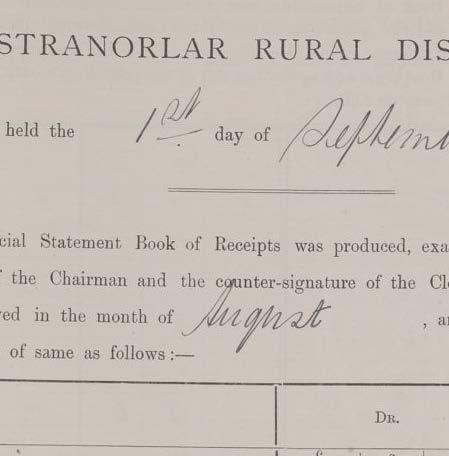 STRANORLAR RURAL DIS
held the 1st. day of Septem
cial Statement Book of Receipts was produced, exa
f the Chairman and the counter-signature of the Cle
ved in the month of August , a
of same as follows:—
DR.